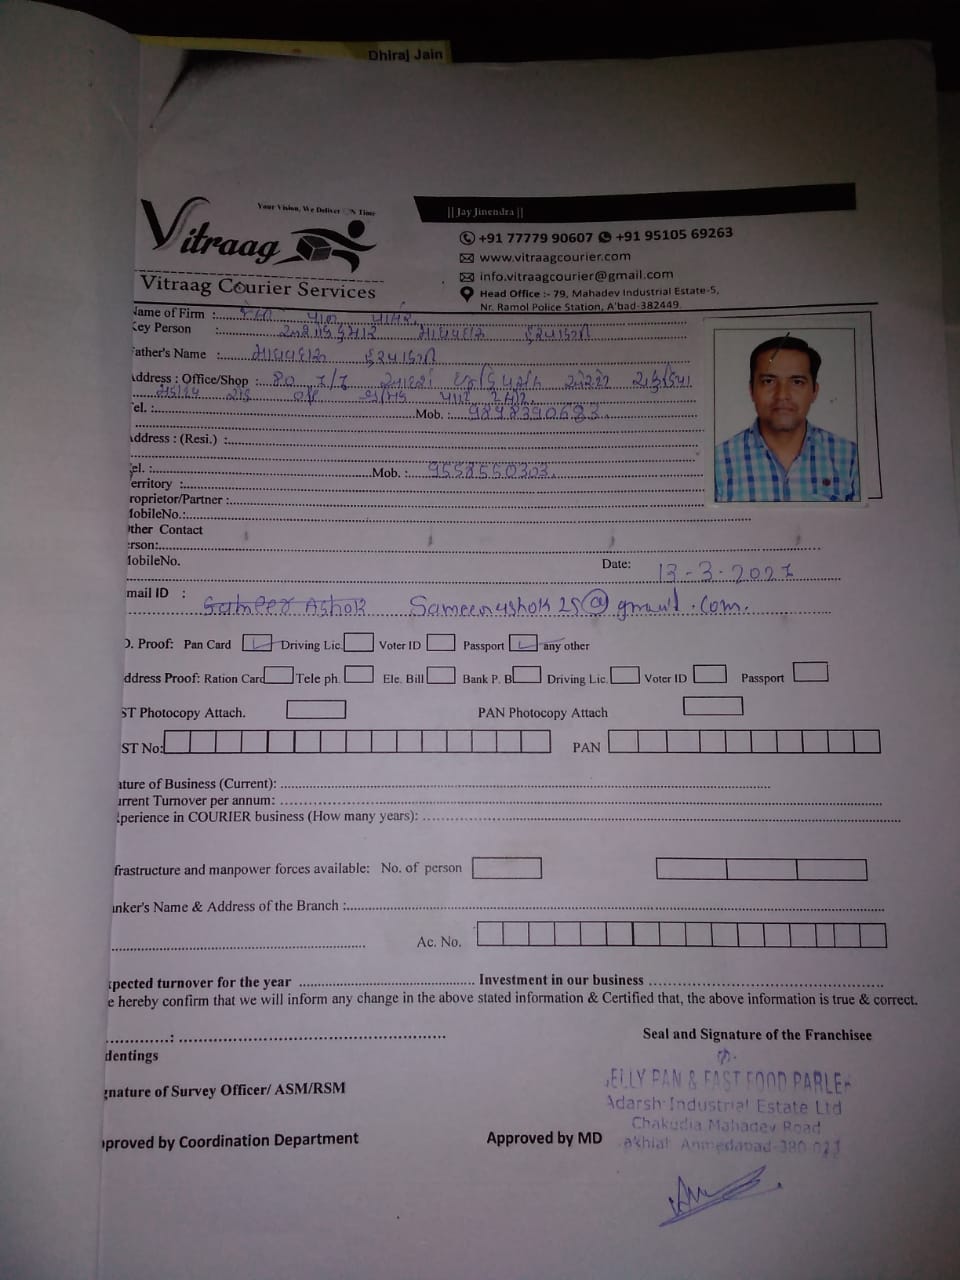 Dhiraj Jain
Your Vision, We Deliver ON Time
|| Jay Jinendra ||
Vitraag
+91 77779 90607 +91 95105 69263
www.vitraagcourier.com
info.vitraagcourier@gmail.com
Vitraag Courier Services
Head Office :- 79, Mahadev Industrial Estate-5,
Nr. Ramol Police Station, A'bad-382449.
Name of Firm : પાન પાર્લર
Key Person :
ather's Name :
ddress : Office/Shop :
el. : Mob. : 9898390683
ddress : (Resi.) :
el. : Mob. : 9558550303
erritory :
roprietor/Partner :
MobileNo.:
ther Contact
erson:
MobileNo. Date: 13-3-2021
mail ID : Sameer Ashok
D. Proof: Pan Card Driving Lic. Voter ID Passport any other
ddress Proof: Ration Card Tele ph. Ele. Bill Bank P. B Driving Lic. Voter ID Passport
ST Photocopy Attach. PAN Photocopy Attach
ST No: PAN
ature of Business (Current):
urrent Turnover per annum:
xperience in COURIER business (How many years):
frastructure and manpower forces available: No. of person
anker's Name & Address of the Branch :
Ac. No.
xpected turnover for the year Investment in our business
e hereby confirm that we will inform any change in the above stated information & Certified that, the above information is true & correct.
Seal and Signature of the Franchisee
dentings
gnature of Survey Officer/ ASM/RSM
ELLY PAN & FAST FOOD PARLER
Adarsh Industrial Estate Ltd
Chakudia Mahadev Road
pproved by Coordination Department Approved by MD
akhial Ahmedabad-380 023